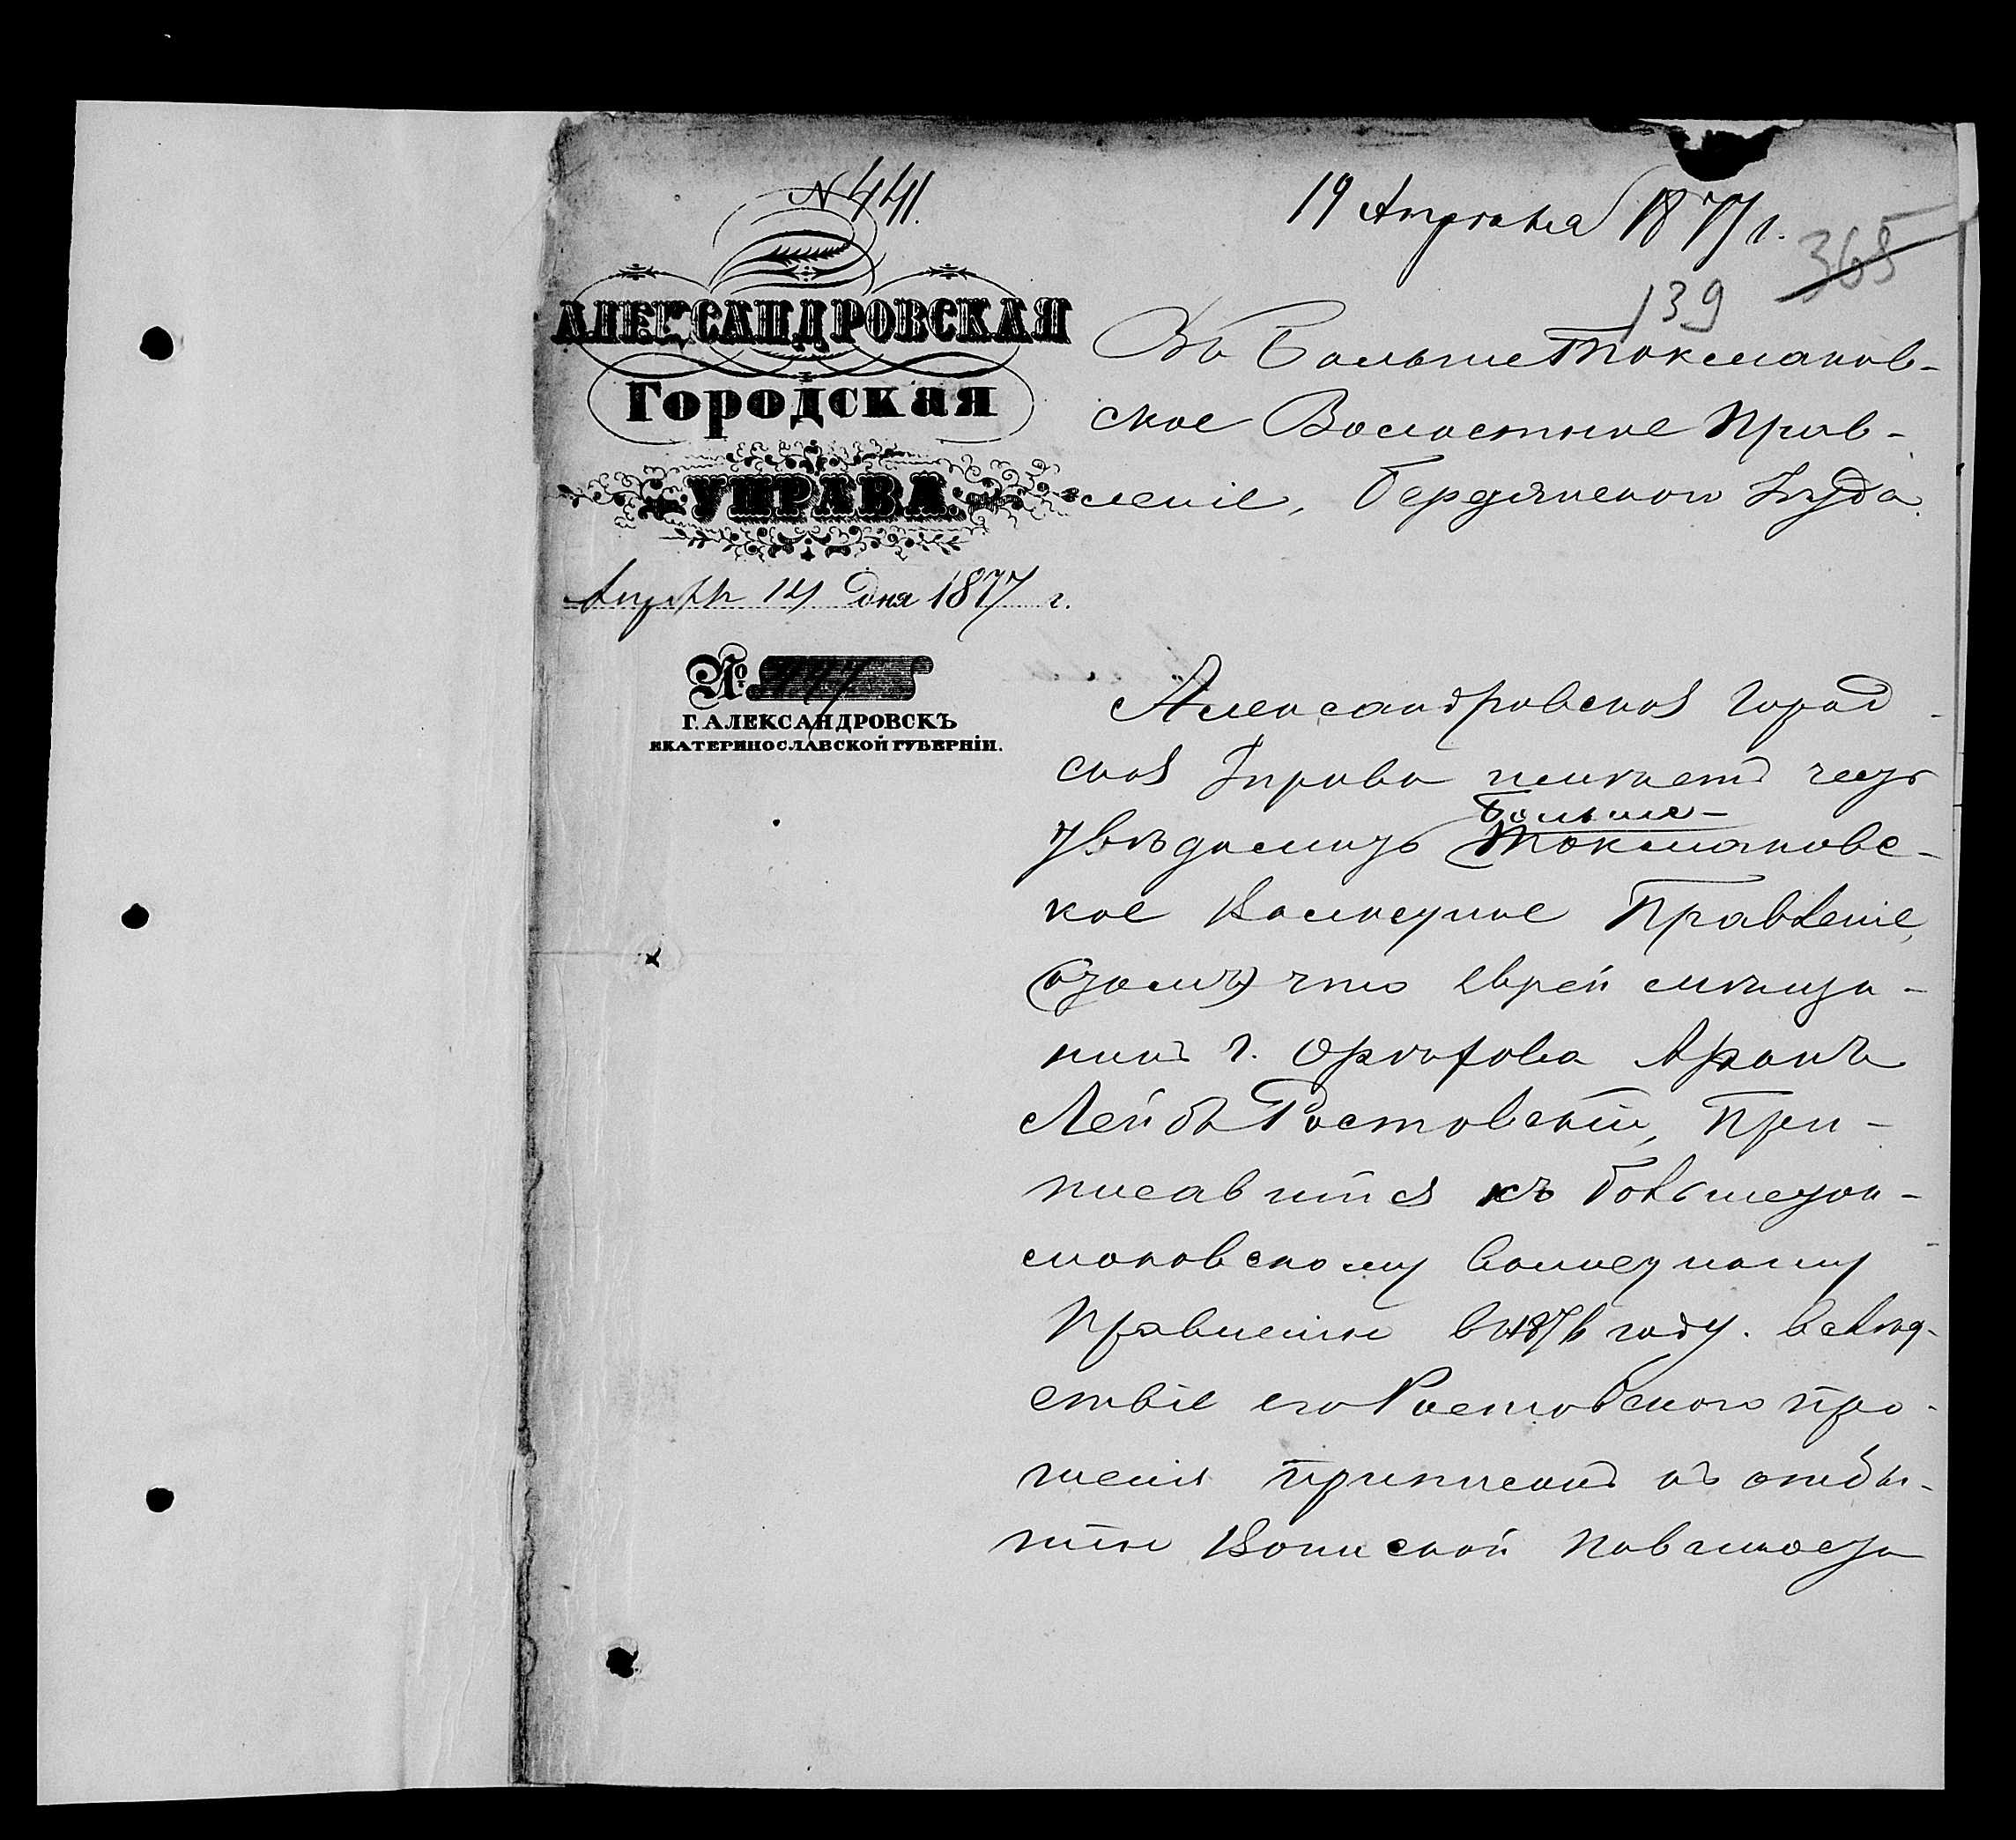 № 441.
19 Апрѣля 1877 г.
365
139
АЛЕКСАНДРОВСКАЯ
Городская
УПРАВА.
Апрѣля 14 дня 1877 г.
№ 447
Г. АЛЕКСАНДРОВСКЪ
ЕКАТЕРИНОСЛАВСКОЙ ГУБЕРНІИ.
Въ Больше Токмаков-
ское Волостное Прав-
леніе, Бердянскаго Уѣзда.
Александровская Город-
ская Управа имѣетъ честь
увѣдомить Больше-
Токмаковс-
кое Волостное Правленіе,
что еврей мѣща-
нинъ г. Орѣхова Аронъ
Лейба Ростовскій, При-
писавшійся къ Большеток-
маковскому Волостному
Правленію въ 1876 году. Вслѣд-
ствіе его Ростовскаго про-
шенія приписанъ къ отбы-
тію Воинской повинности